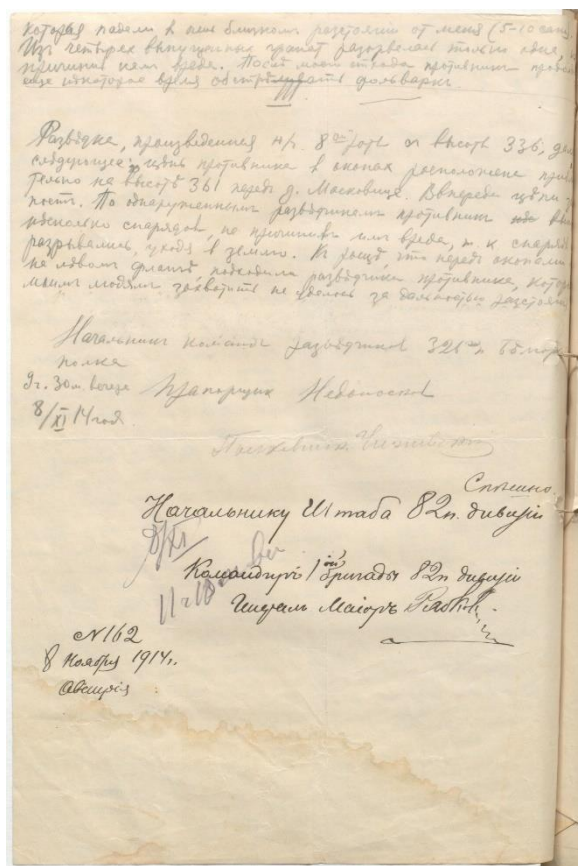 которая падали в пол близком разстоянии от меня (5-10 саж
Из четырех выпущенных гранат разорвалась только одна,
причинив нам вреда. После отхода противник
еще некоторое время обстреливать фольварк.
III
Разведка, произведенная 8ой роты высотѣ 336,
следующее: цѣпь противника в окопах расположена
тельно на высотѣ 361 передъ д. Масковице. Впереди цѣпи
посты. По обнаруженным разведчикам противник
несколько снарядов, не причинив им вреда, т. к. снаряды
разрывались, уходя в землю. К рощѣ, что передъ окопами
на лѣвом флангѣ, подходили разведчики противника, котор
моим людям захватить не удалось за дальностью разстояния
Начальник команды разведчиков 326го п
полка
9 ч. 30 м. вечера Прапорщик
8/XI 14 года
Спѣшно.
Начальнику Штаба 82 п. дивизіи
8/XI
Командиръ 1ой бригады 82 п. дивизіи
11 ч 10
Генералъ Маіоръ
N 162
8 Ноября 1914 г.
Австрія